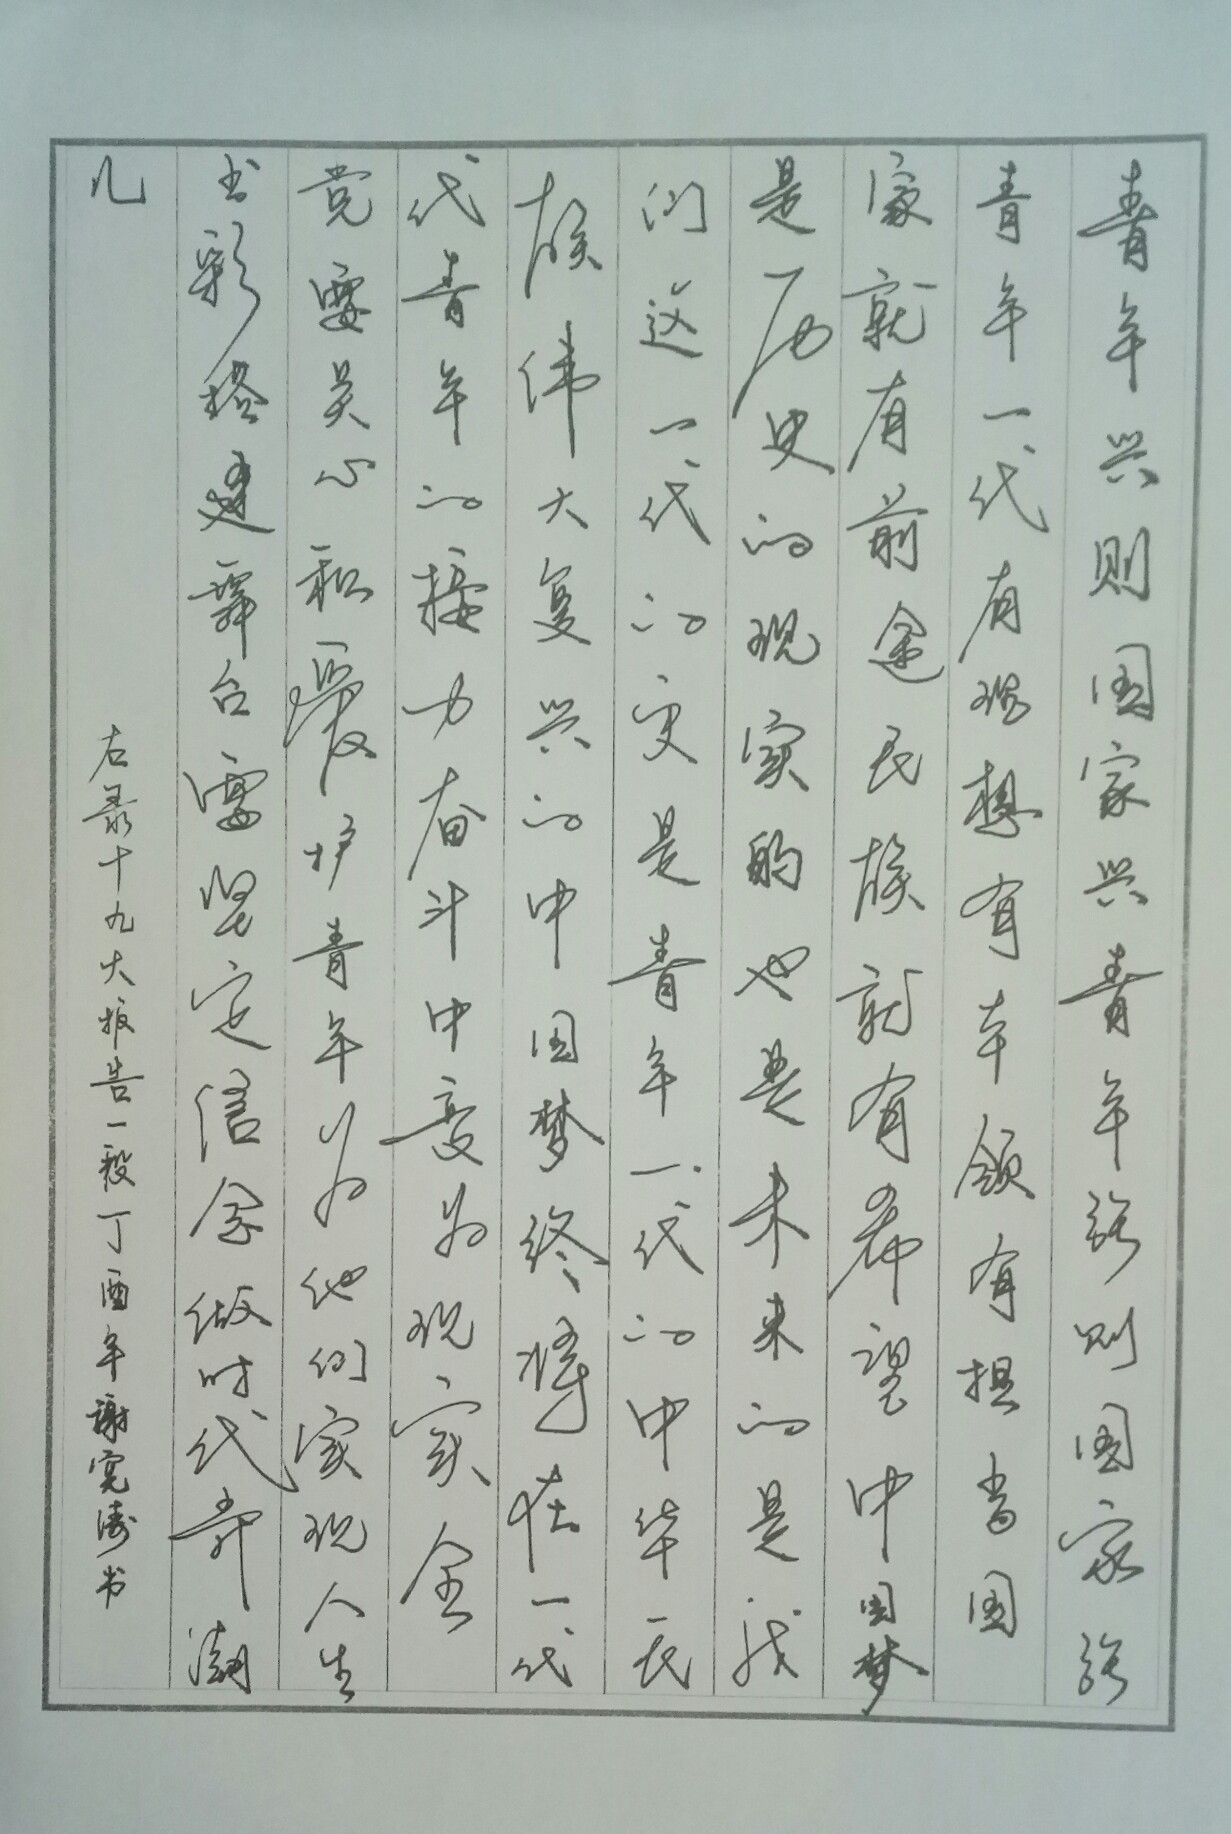 青年兴则国家兴青年强则国家强
青年一代有理想有本领有担当国
家就有前途民族就有希望中国梦
是历史的现实的也是未来的是我
们这一代的更是青年一代的中华民
族伟大复兴的中国梦终将在一代
代青年的接力奋斗中变为现实全
党要关心和爱护青年为他们实现人生
出彩搭建舞台要坚定信念做时代弄潮
儿
右录十九大报告一段丁酉年谢宽涛书